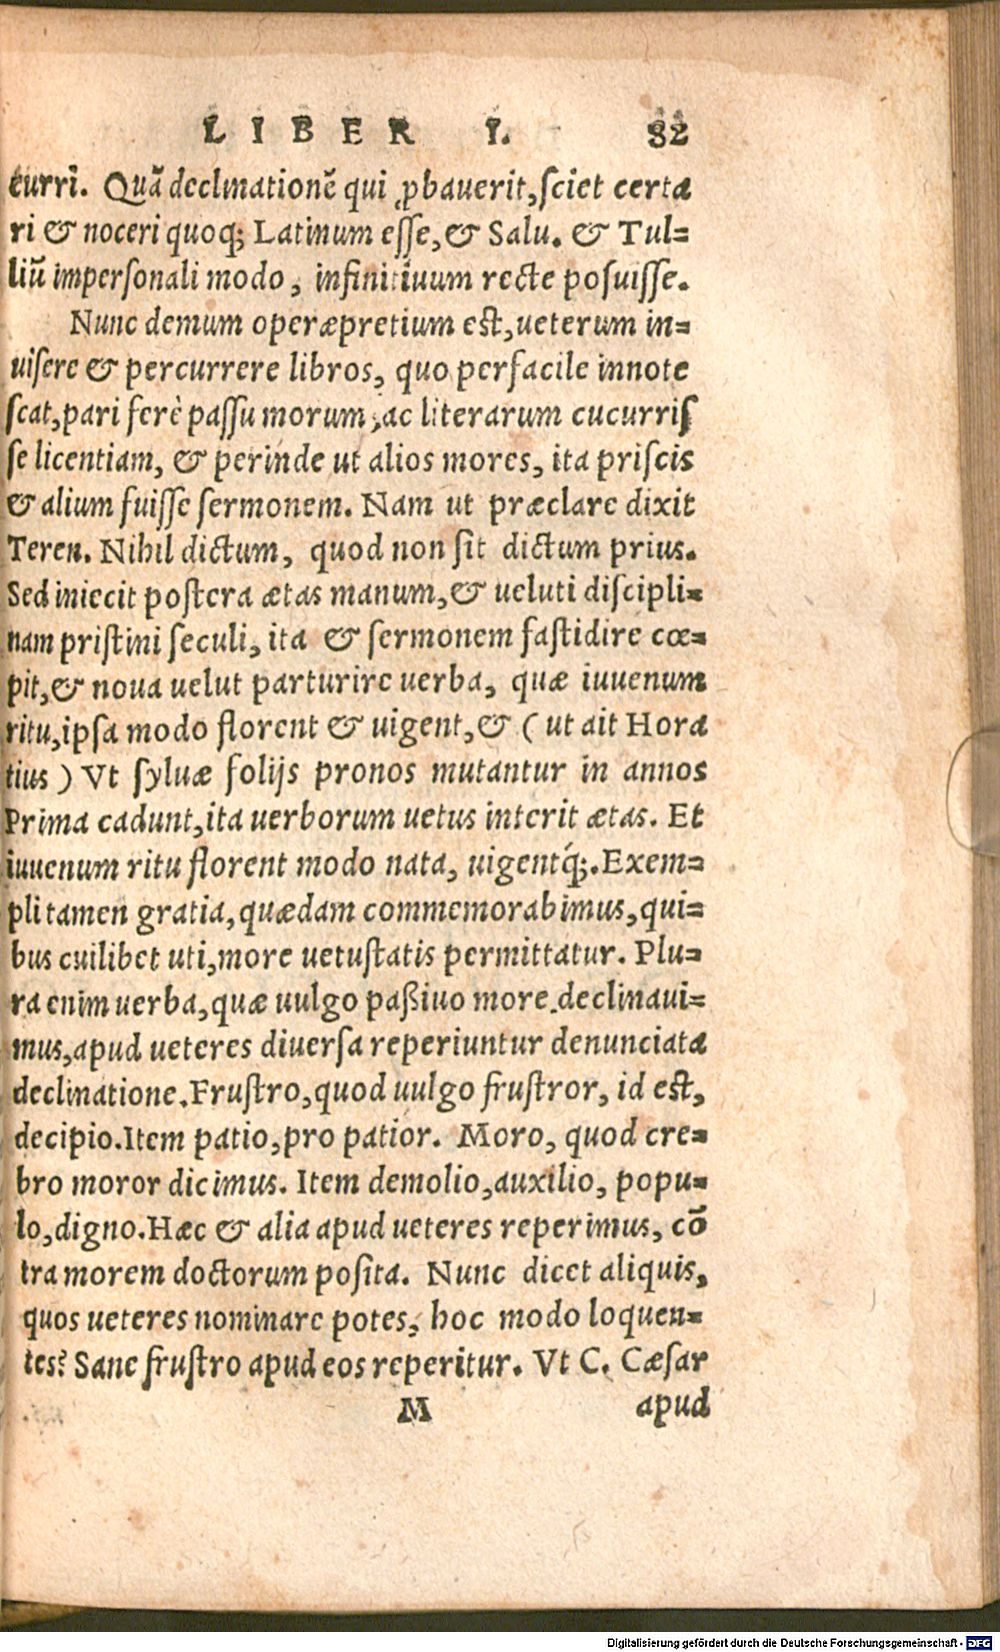 LIBER I. 82
curri. Quã declinationẽ qui ꝓbaverit, sciet certa
ri & noceri quoq; Latinum esse, & Salu. & Tul=
liũ impersonali modo, infinitiuum recte posuisse.
Nunc demum operæpretium est, ueterum in=
uisere & percurrere libros, quo perfacile innote
scat, pari ferè passu morum, ac literarum cucurris
se licentiam, & perinde ut alios mores, ita priscis
& alium fuisse sermonem. Nam ut præclare dixit
Teren. Nihil dictum, quod non sit dictum prius.
Sed iniecit postera ætas manum, & ueluti discipli=
nam pristini seculi, ita & sermonem fastidire cœ=
pit, & noua uelut parturire uerba, quæ iuuenum
ritu, ipsa modo florent & uigent, & (ut ait Hora
tius) Vt syluæ folijs pronos mutantur in annos
Prima cadunt, ita uerborum uetus interit ætas. Et
iuuenum ritu florent modo nata, uigentq́;. Exem=
pli tamen gratia, quædam commemorabimus, qui=
bus cuilibet uti, more uetustatis permittatur. Plu=
ra enim uerba, quæ uulgo paßiuo more declinaui=
mus, apud ueteres diuersa reperiuntur denunciata
declinatione. Frustro, quod uulgo frustror, id est,
decipio. Item patio, pro patior. Moro, quod cre=
bro moror dicimus. Item demolio, auxilio, popu=
lo, digno. Hæc & alia apud ueteres reperimus, cõ
tra morem doctorum posita. Nunc dicet aliquis,
quos ueteres nominare potes, hoc modo loquen=
tes? Sane frustro apud eos reperitur. Vt C. Cæsar
M apud
Digitalisierung gefördert durch die Deutsche Forschungsgemeinschaft - DFG